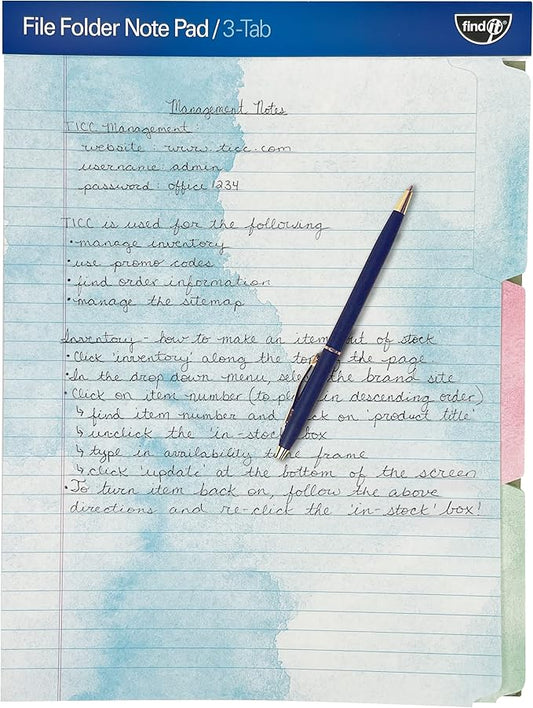 File Folder Note Pad / 3-Tab
find it®
Management Notes
TICC Management:
website: www.ticc.com
username: admin
password: office1234
TICC is used for the following
•manage inventory
•use promo codes
•find order information
•manage the sitemap
Inventory - how to make an item out of stock
•Click 'inventory' along the top the page
•In the drop down menu, select the brand site
•Click on item number (to pl in descending order)
↳ find item number and click on 'product title'
↳ unclick the 'in-stock' box
↳ type in availability time frame
↳ click 'update' at the bottom of the screen
•To turn item back on, follow the above
directions and re-click the 'in-stock' box!